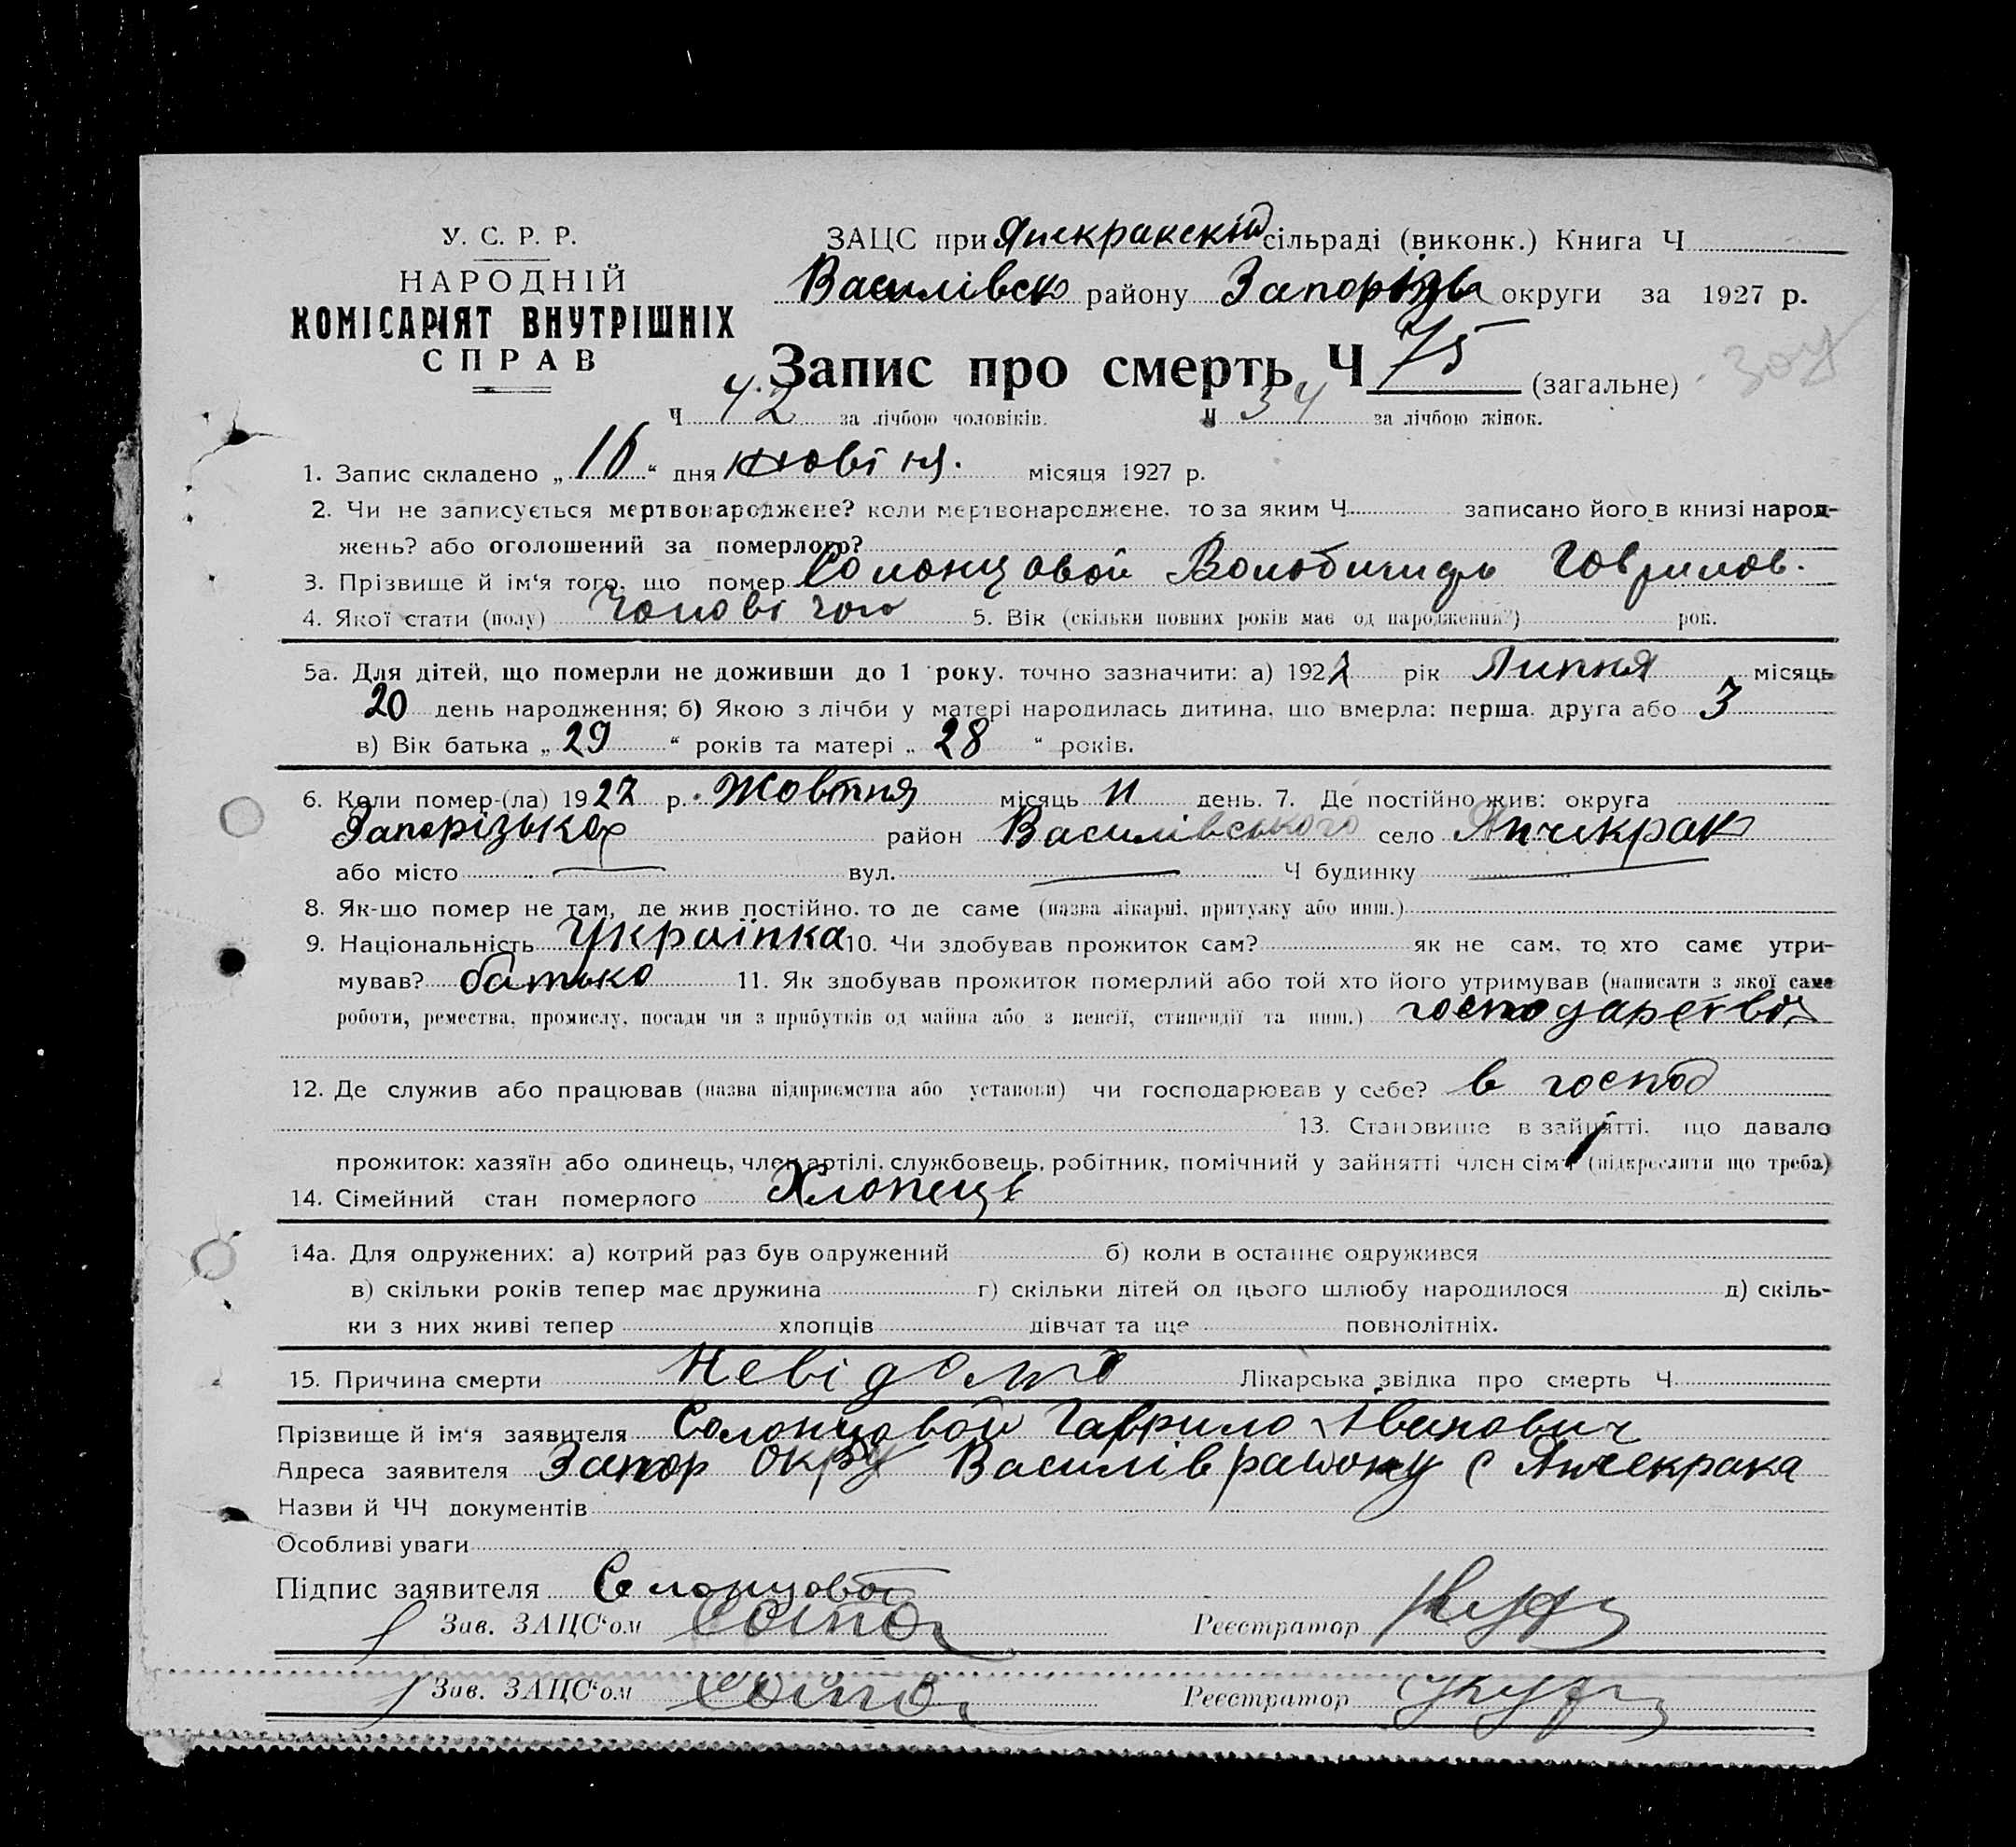 У. С. Р. Р.
НАРОДНІЙ
КОМІСАРІЯТ ВНУТРІШНІХ
СПРАВ
ЗАЦС при Янчекракскій сільраді (виконк.) Книга Ч
Василівск району Запорізьк округи за 1927 р.
Запис про смерть Ч 75 (загальне)
Ч 42 за лічбою чоловіків. Ч 34 за лічбою жінок.
1. Запис складено „ 16 “ дня жовтня. місяця 1927 р.
2. Чи не записується мертвонароджене? коли мертвонароджене, то за яким Ч записано його в книзі народ-
жень? або оголошений за померлого?
3. Прізвище й ім‘я того, що помер Солонцовой Гаврилов.
4. Якої стати (полу) Чоловічого 5. Вік (скільки повних років має од народження?) рок.
5а. Для дітей, що померли не доживши до 1 року, точно зазначити: а) 1927 рік Липня місяць
20 день народження; б) Якою з лічби у матері народилась дитина, що вмерла: перша, друга або 3
в) Вік батька „ 29 “ років та матері „ 28 “ років.
6. Коли помер-(ла) 1927 р. Жовтня місяць 11 день. 7. Де постійно жив: округа
Запорізька район Василівського село Янчикрак
або місто вул. Ч будинку
8. Як-що помер не там, де жив постійно, то де саме (назва лікарні, притулку або инш.)
9. Національність Українка 10. Чи здобував прожиток сам? як не сам, то хто саме утри-
мував? батько 11. Як здобував прожиток померлий або той хто його утримував (написати з якої саме
роботи, ремества, промислу, посади чи з прибутків од майна або з пенсії, стипендії та инш.) господарство
12. Де служив або працював (назва підприємства або установи) чи господарював у себе? в господ
13. Становище в зайнятті, що давало
прожиток: хазяїн або одинець, член артілі, службовець, робітник, помічний у зайнятті член сім‘ї (підкреслити що треба)
14. Сімейний стан померлого Хлопець
14а. Для одружених: а) котрий раз був одружений б) коли в останнє одружився
в) скільки років тепер має дружина г) скільки дітей од цього шлюбу народилося д) скіль-
ки з них живі тепер хлопців дівчат та ще повнолітніх.
15. Причина смерти Невідомо Лікарська звідка про смерть Ч
Прізвище й ім‘я заявителя Солонцовой Гаврило Іванович
Адреса заявителя Запор окру Василів району с Янчекрака
Назви й ЧЧ документів
Особливі уваги
Підпис заявителя Солонцовой
Зав. ЗАЦС‘ом Реєстратор
Зав. ЗАЦС‘ом Реєстратор